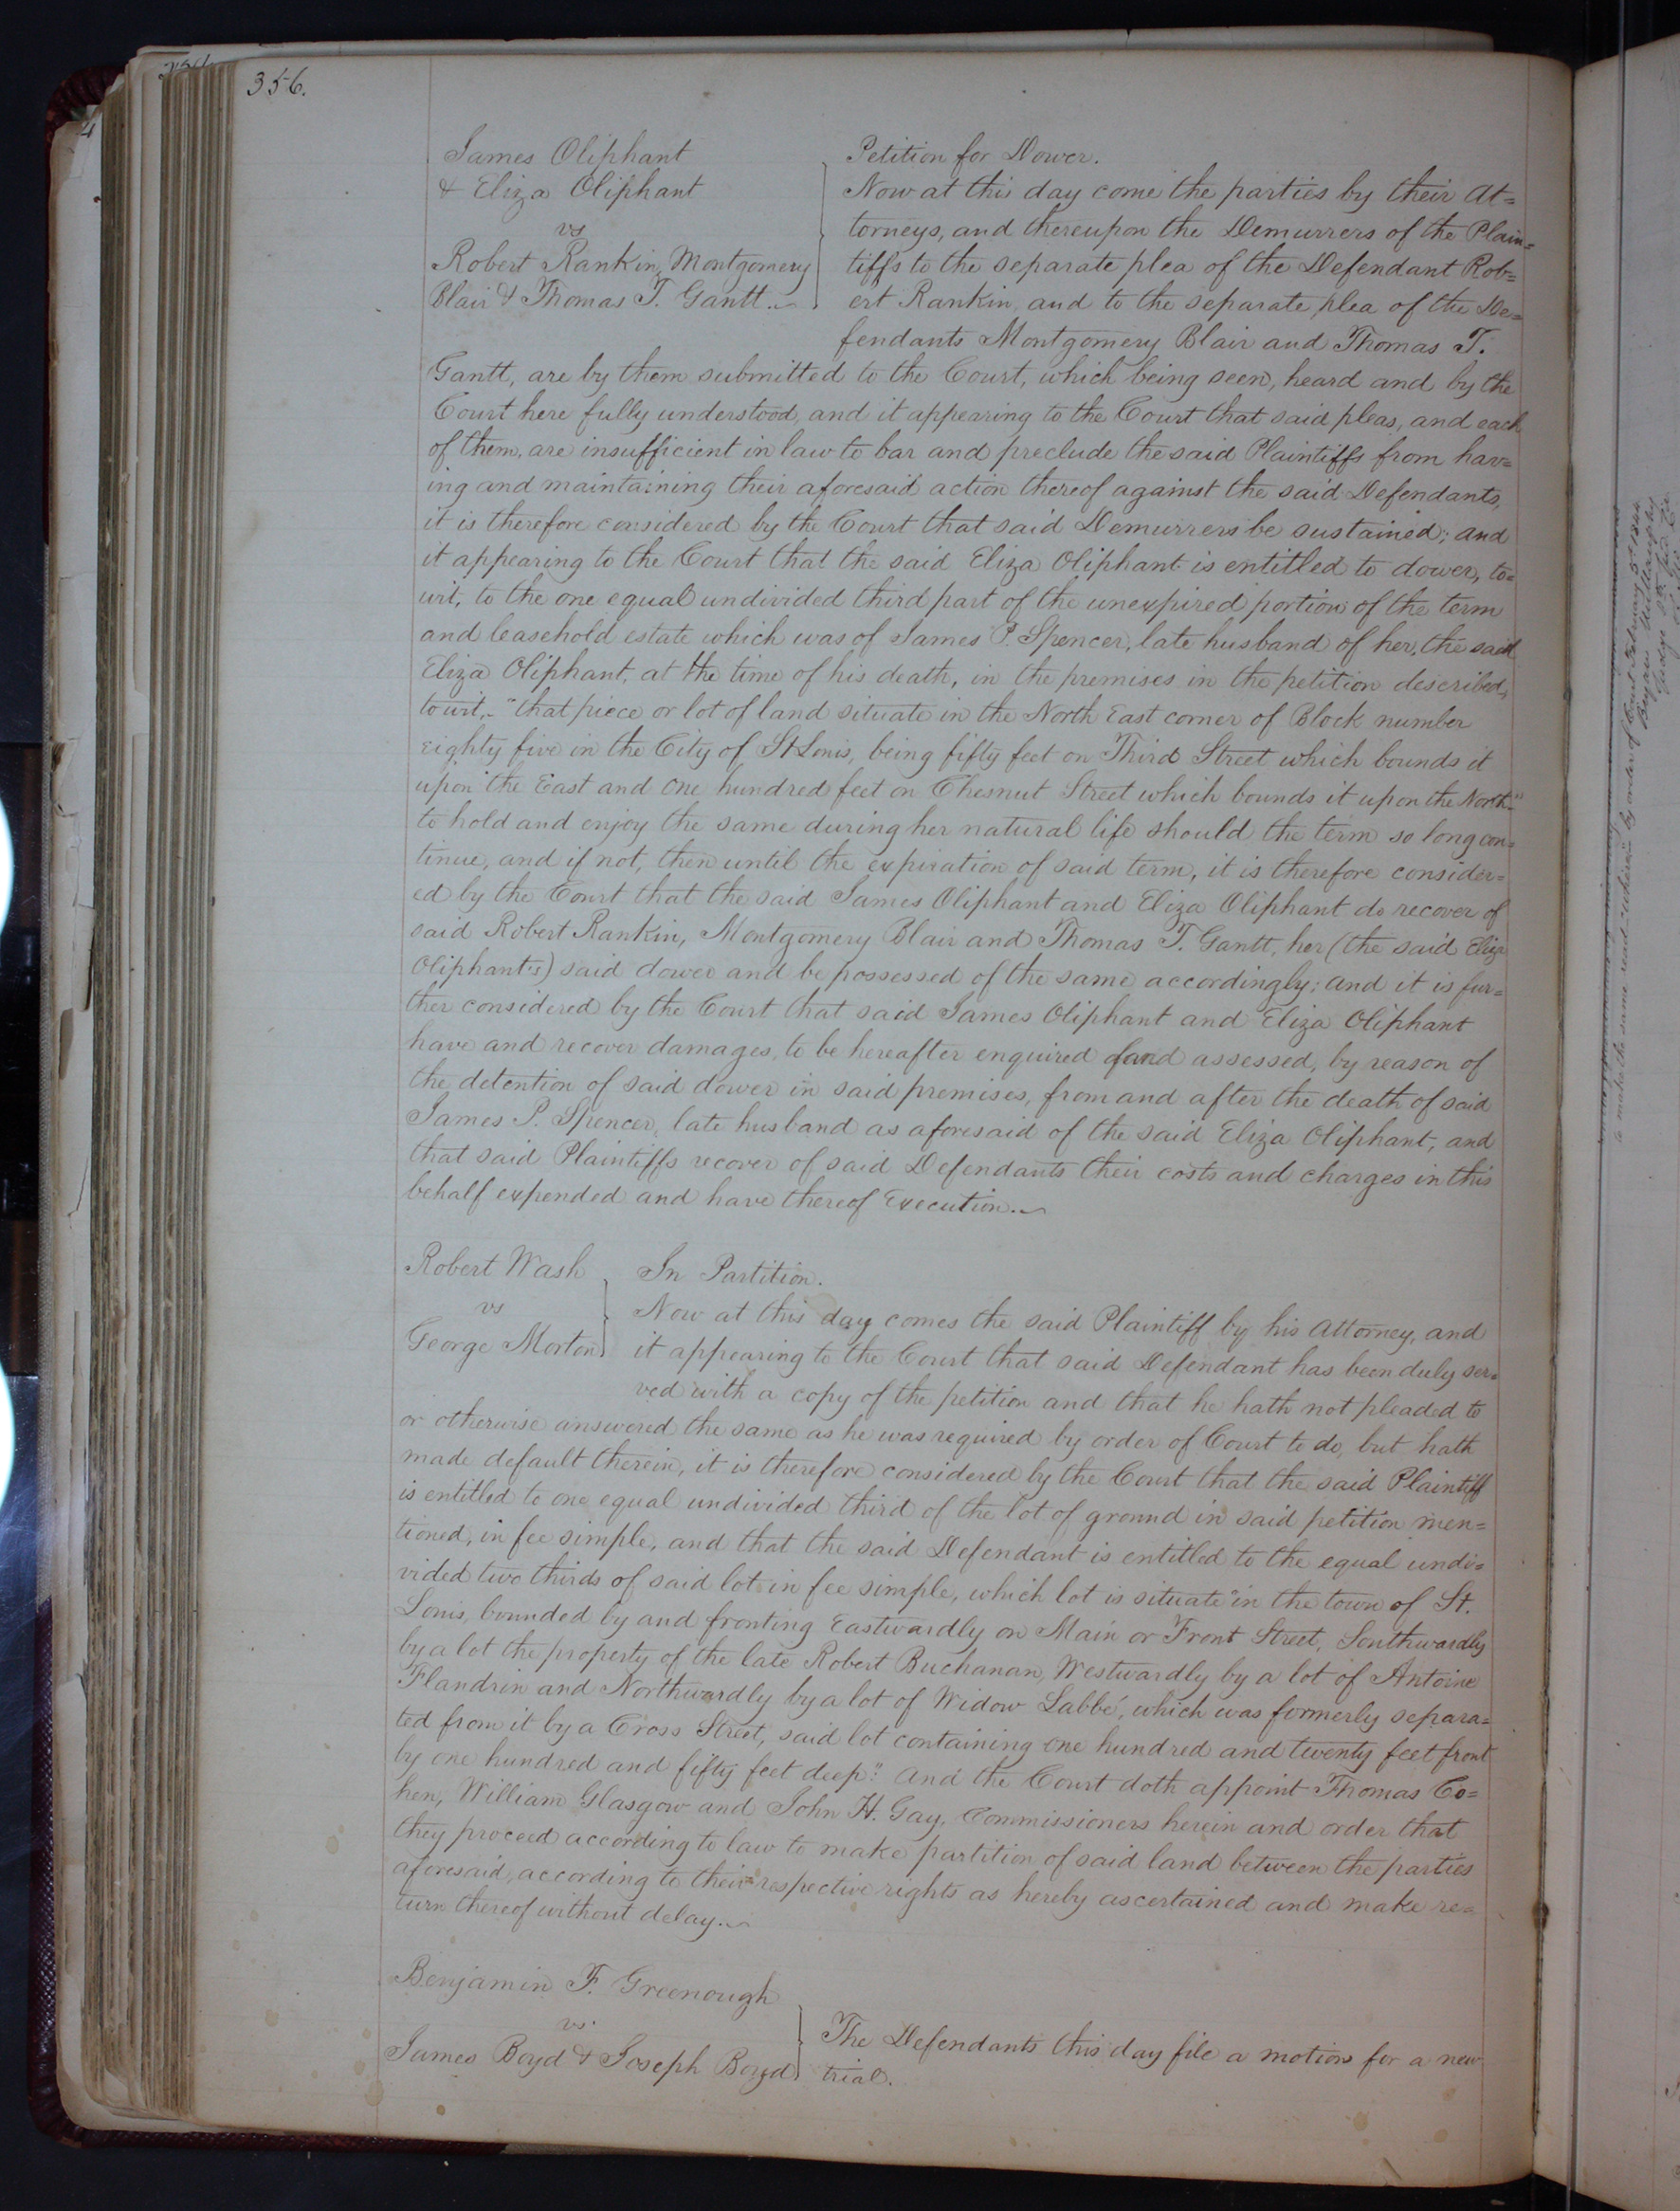 356.
James Oliphant
& Eliza Oliphant
vs
Robert Rankin, Montgomery
Blair & Thomas T. Gantt.
Petition for Dower.
Now at this day come the parties by their At=
torneys, and thereupon the Demurrers of the Plain=
tiffs to the separate plea of the Defendant Rob=
ert Rankin, and to the separate plea of the De=
fendants Montgomery Blair and Thomas T.
Gantt, are by them submitted to the Court, which being seen, heard and by the
Court here fully understood, and it appearing to the Court that said pleas, and each
of them, are insufficient in law to bar and preclude the said Plaintiffs from hav=
ing and maintaining their aforesaid action thereof against the said Defendants,
it is therefore considered by the Court that said Demurrers be sustained; and
it appearing to the Court that the said Eliza Oliphant is entitled to dower, to=
wit, to the one equal undivided third part of the unexpired portion of the term
and leasehold estate which was of James P. Spencer, late husband of her, the said
Eliza Oliphant, at the time of his death, in the premises in the petition described,
to wit,- "that piece or lot of land situate in the North East corner of Block number
eighty five in the City of St Louis, being fifty feet on Third Street which bounds it
upon the East and one hundred feet on Chesnut Street which bounds it upon the North"
to hold and enjoy the same during her natural life should the term so long con=
tinue, and if not, then until the expiration of said term, it is therefore consider=
ed by the Court that the said James Oliphant and Eliza Oliphant do recover of
said Robert Rankin, Montgomery Blair and Thomas T. Gantt, her (the said Eliza
Oliphant's) said dower and be possessed of the same accordingly; and it is fur=
ther considered by the Court that said James Oliphant and Eliza Oliphant
have and recover damages, to be hereafter enquired of and assessed, by reason of
the detention of said dower in said premises, from and after the death of said
James P. Spencer, late husband as aforesaid of the said Eliza Oliphant, and
that said Plaintiffs recover of said Defendants their costs and charges in this
behalf expended and have thereof Execution.
Robert Wash
vs
George Morton
In Partition.
Now at this day comes the said Plaintiff by his Attorney, and
it appearing to the Court that said Defendant has been duly ser=
ved with a copy of the petition and that he hath not pleaded to
or otherwise answered the same as he was required by order of Court to do, but hath
made default therein, it is therefore considered by the Court that the said Plaintiff
is entitled to one equal undivided third of the lot of ground in said petition men=
tioned, in fee simple, and that the said Defendant is entitled to the equal undi=
vided two thirds of said lot in fee simple, which lot is situate "in the town of St.
Louis, bounded by and fronting Eastwardly on Main or Front Street, Southwardly
by a lot the property of the late Robert Buchanan, Westwardly by a lot of Antoine
Flandrin and Northwardly by a lot of Widow Labbé, which was formerly separa=
ted from it by a Cross Street, said lot containing one hundred and twenty feet front
by one hundred and fifty feet deep." And the Court doth appoint Thomas Co=
hen, William Glasgow and John H. Gay, Commissioners herein and order that
they proceed according to law to make partition of said land between the parties
aforesaid, according to their respective rights as hereby ascertained and make re=
turn thereof without delay.
Benjamin F. Greenough
vs.
James Boyd & Joseph Boyd
The Defendants this day file a motion for a new
trial.
to make the same read "wherein" by order of Court February 5th 1844
Bryan Mullanphy
Judge 8th Jud. Cir.